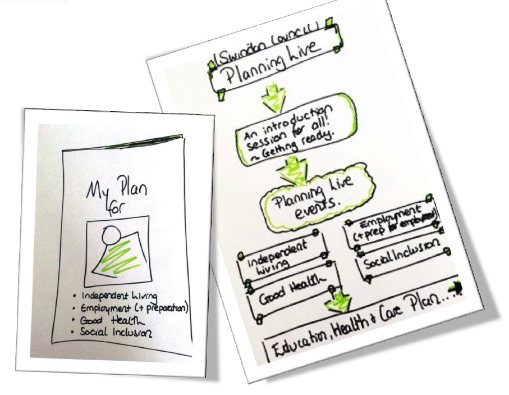 My Plan
for
• Independent Living
• Employment (+ preparation)
• Good Health
• Social Inclusion
(Swindon Council)
Planning Live
An introduction
session for all!
~ Getting ready.
Planning Live
events.
Independent
Living
Good Health
Employment
(+ prep for employment)
Social Inclusion
Education, Health + Care Plan....